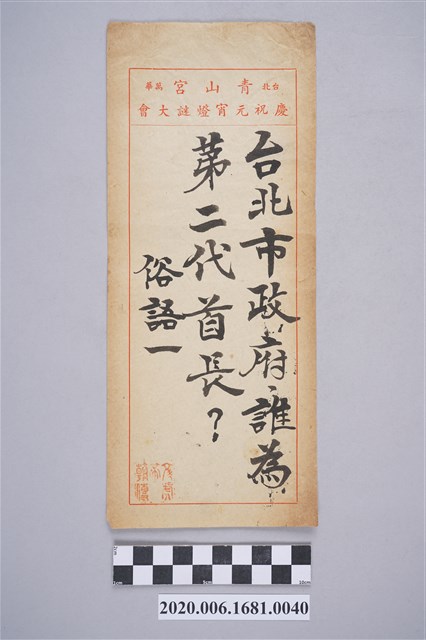 台北 青山宮 萬華
慶祝元宵燈謎大會
台北市政府誰為
第二代首長？
俗語一
2020.006.1681.0040